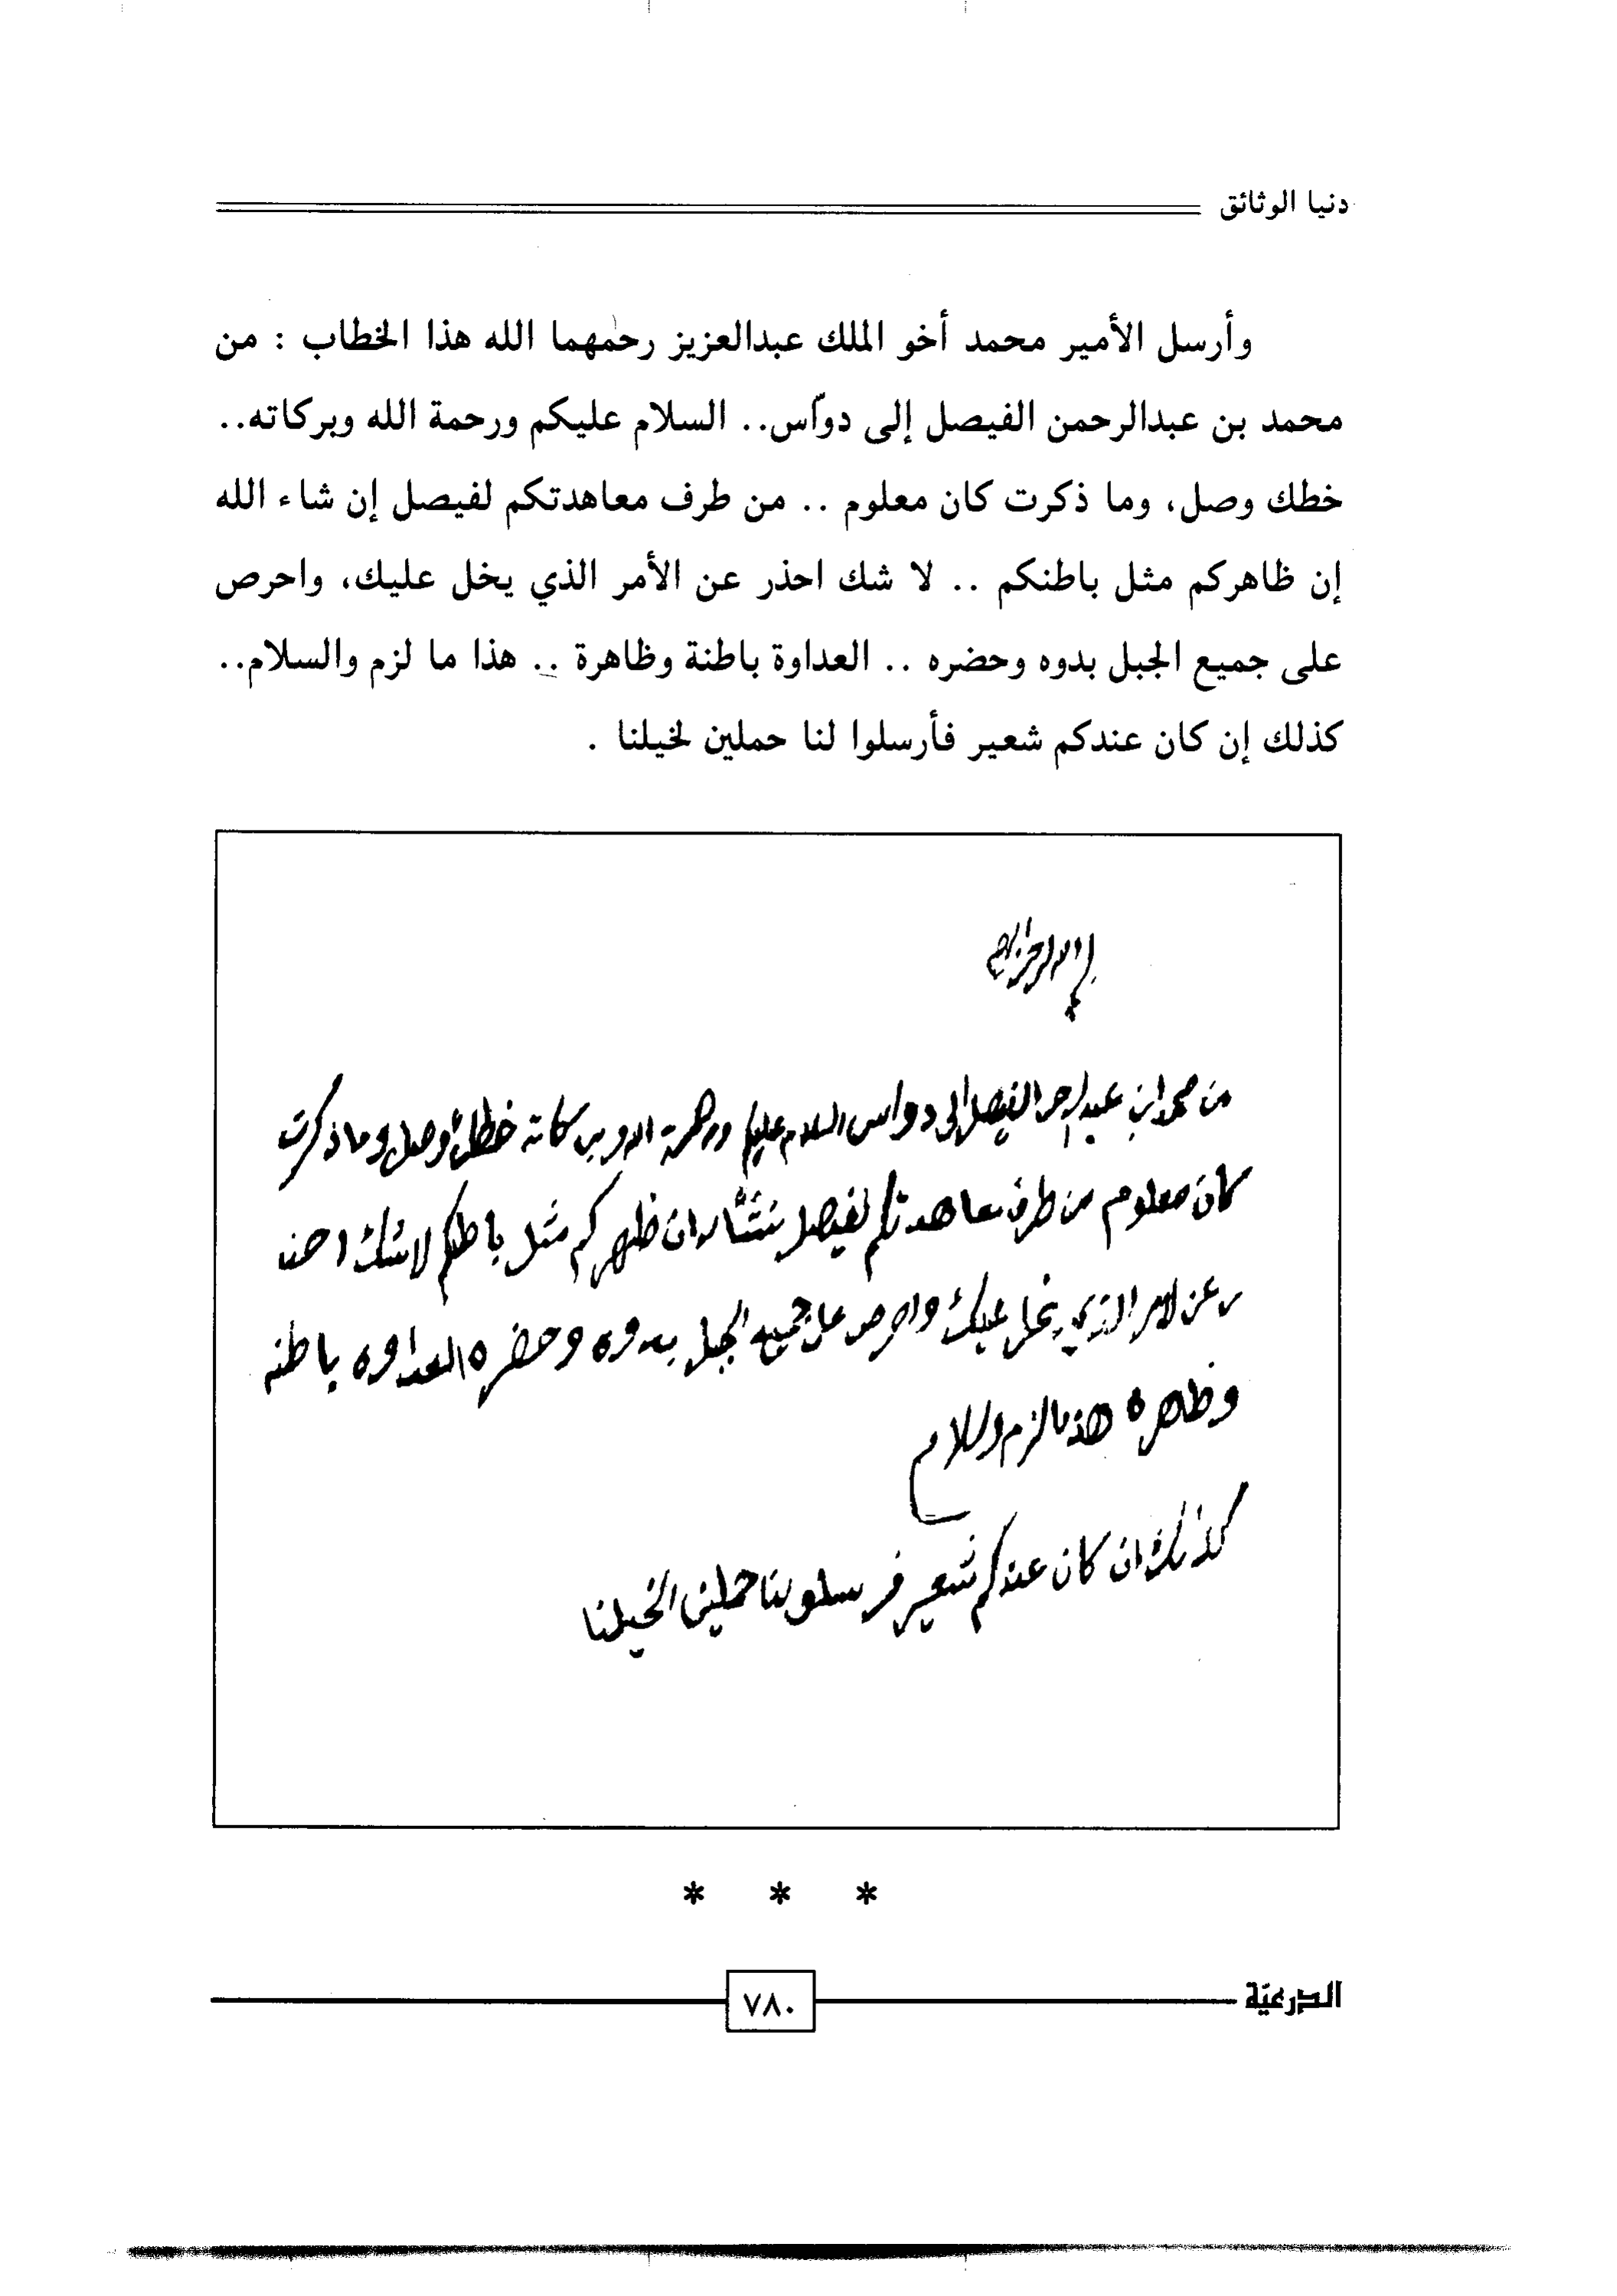 دنيا الوثائق
وأرسل الأمير محمد أخو الملك عبدالعزيز رحمهما الله هذا الخطاب : من
محمد بن عبدالرحمن الفيصل إلى دوّاس.. السلام عليكم ورحمة الله وبركاته..
خطك وصل، وما ذكرت كان معلوم .. من طرف معاهدتكم لفيصل إن شاء الله
إن ظاهركم مثل باطنكم .. لا شك احذر عن الأمر الذي يخل عليك، واحرص
على جميع الجبل بدوه وحضره .. العداوة باطنة وظاهرة .. هذا ما لزم والسلام..
كذلك إن كان عندكم شعير فأرسلوا لنا حملين لخيلنا .
من محمد ابن عبدالرحمن الفيصل الى دواس السلام عليكم ورحمة الله وبركاته خطك وصل وما ذكرت
كان معلوم من طرف معاهدتكم لفيصل ان ظهركم مثل باطنكم لاشك احذ
ر عن لامر الذي يخل عليك واحرص على جميع الجبل بدوه وحضره العداوه باطنه
وظاهره هذ مالزم والسلام
كذلك ان كان عندكم شعير فرسلو لنا حملين الخيلنا
* * *
الدرعيّة
٧٨٠